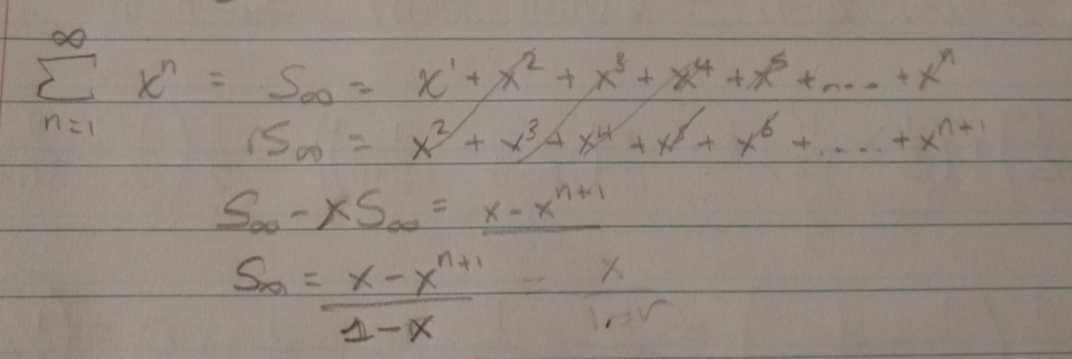 ∞
∑ xⁿ = S∞ = x¹ + x² + x³ + x⁴ + x⁵ + .... + xⁿ
n=1
rS∞ = x² + x³ + x⁴ + x⁵ + x⁶ + ..... + xⁿ⁺¹
S∞ - xS∞ = x - xⁿ⁺¹
S∞ = x - xⁿ⁺¹ = x
1-x 1-r